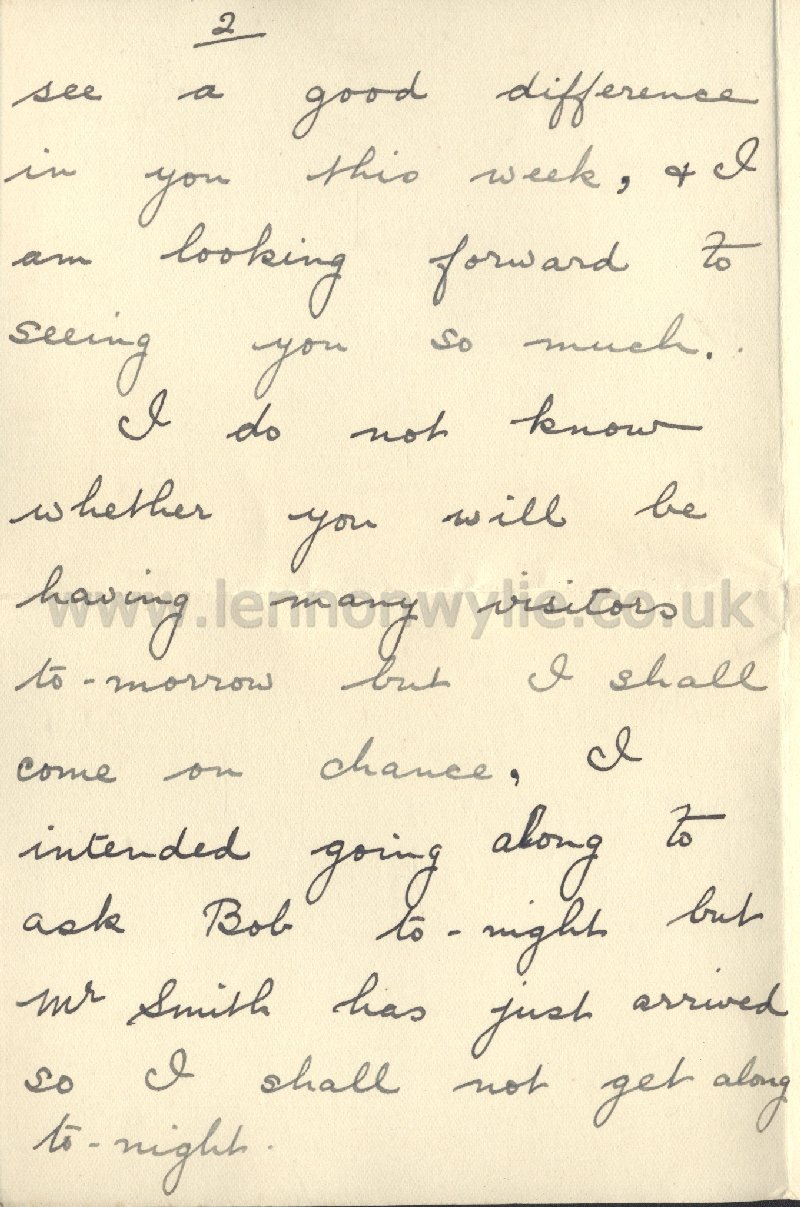 2
see a good difference
in you this week, & I
am looking forward to
seeing you so much.
I do not know
whether you will be
having many visitors
www.lennonwylie.co.uk
to-morrow but I shall
come on chance, I
intended going along to
ask Bob to-night but
Mr Smith has just arrived
so I shall not get along
to-night.